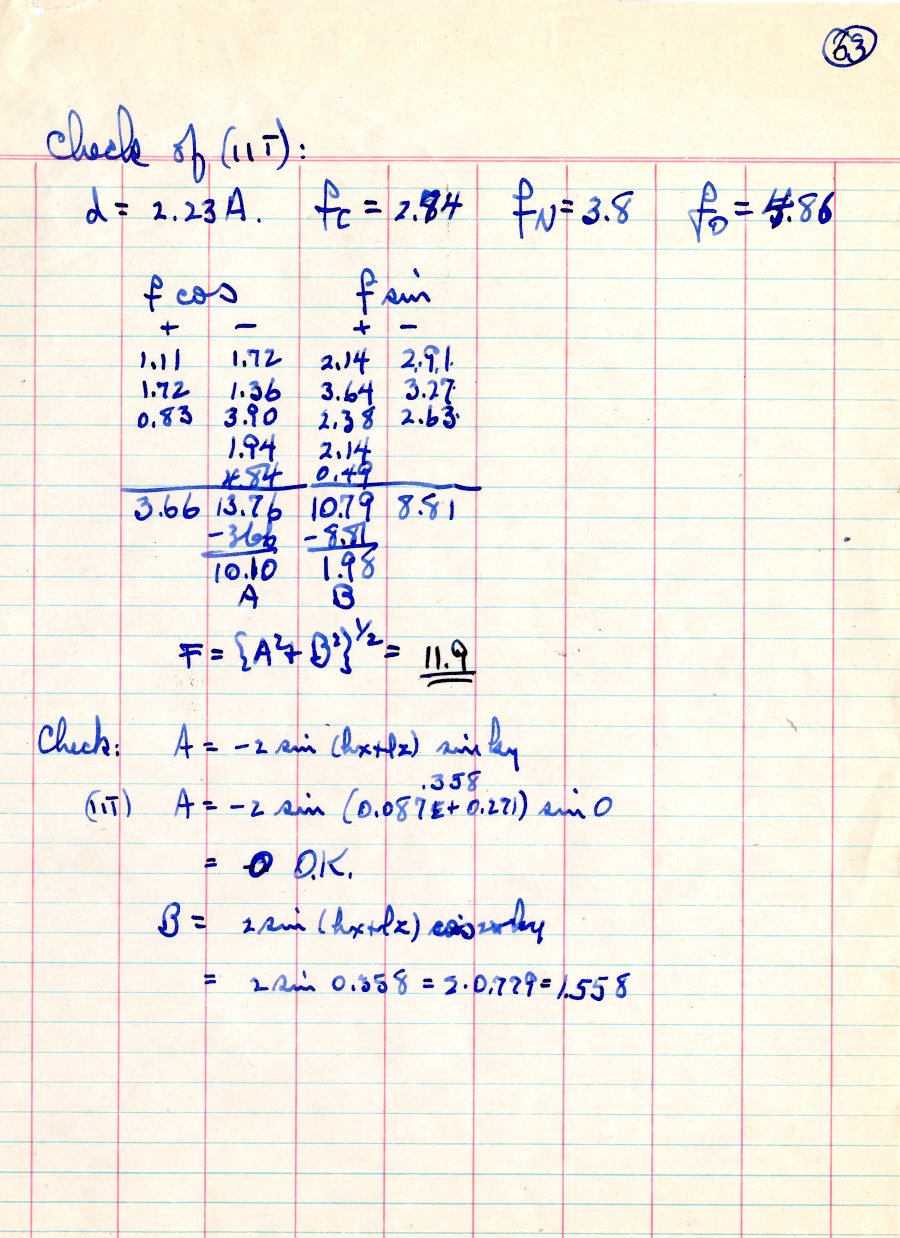 63
Check of (11T̄):
d = 2.23 A. fC = 2.84 fN = 3.8 fO = 4.86
f cos f sin
+ − + −
1.11 1.72 2.14 2.91
1.72 1.36 3.64 3.27
0.83 3.90 2.38 2.63
1.94 2.14
4.84 0.49
3.66 13.76 10.79 8.81
-3.66 -8.81
10.10 1.98
A B
F = {A² + B²}^1/2 = 11.9
Check: A = -2 sin (hx+lz) sin ky
.358
(11T̄) A = -2 sin (0.087 + 0.271) sin 0
= 0 O.K.
B = 2 sin (hx+lz) cos ky
= 2 sin 0.358 = 2·0.779 = 1.558